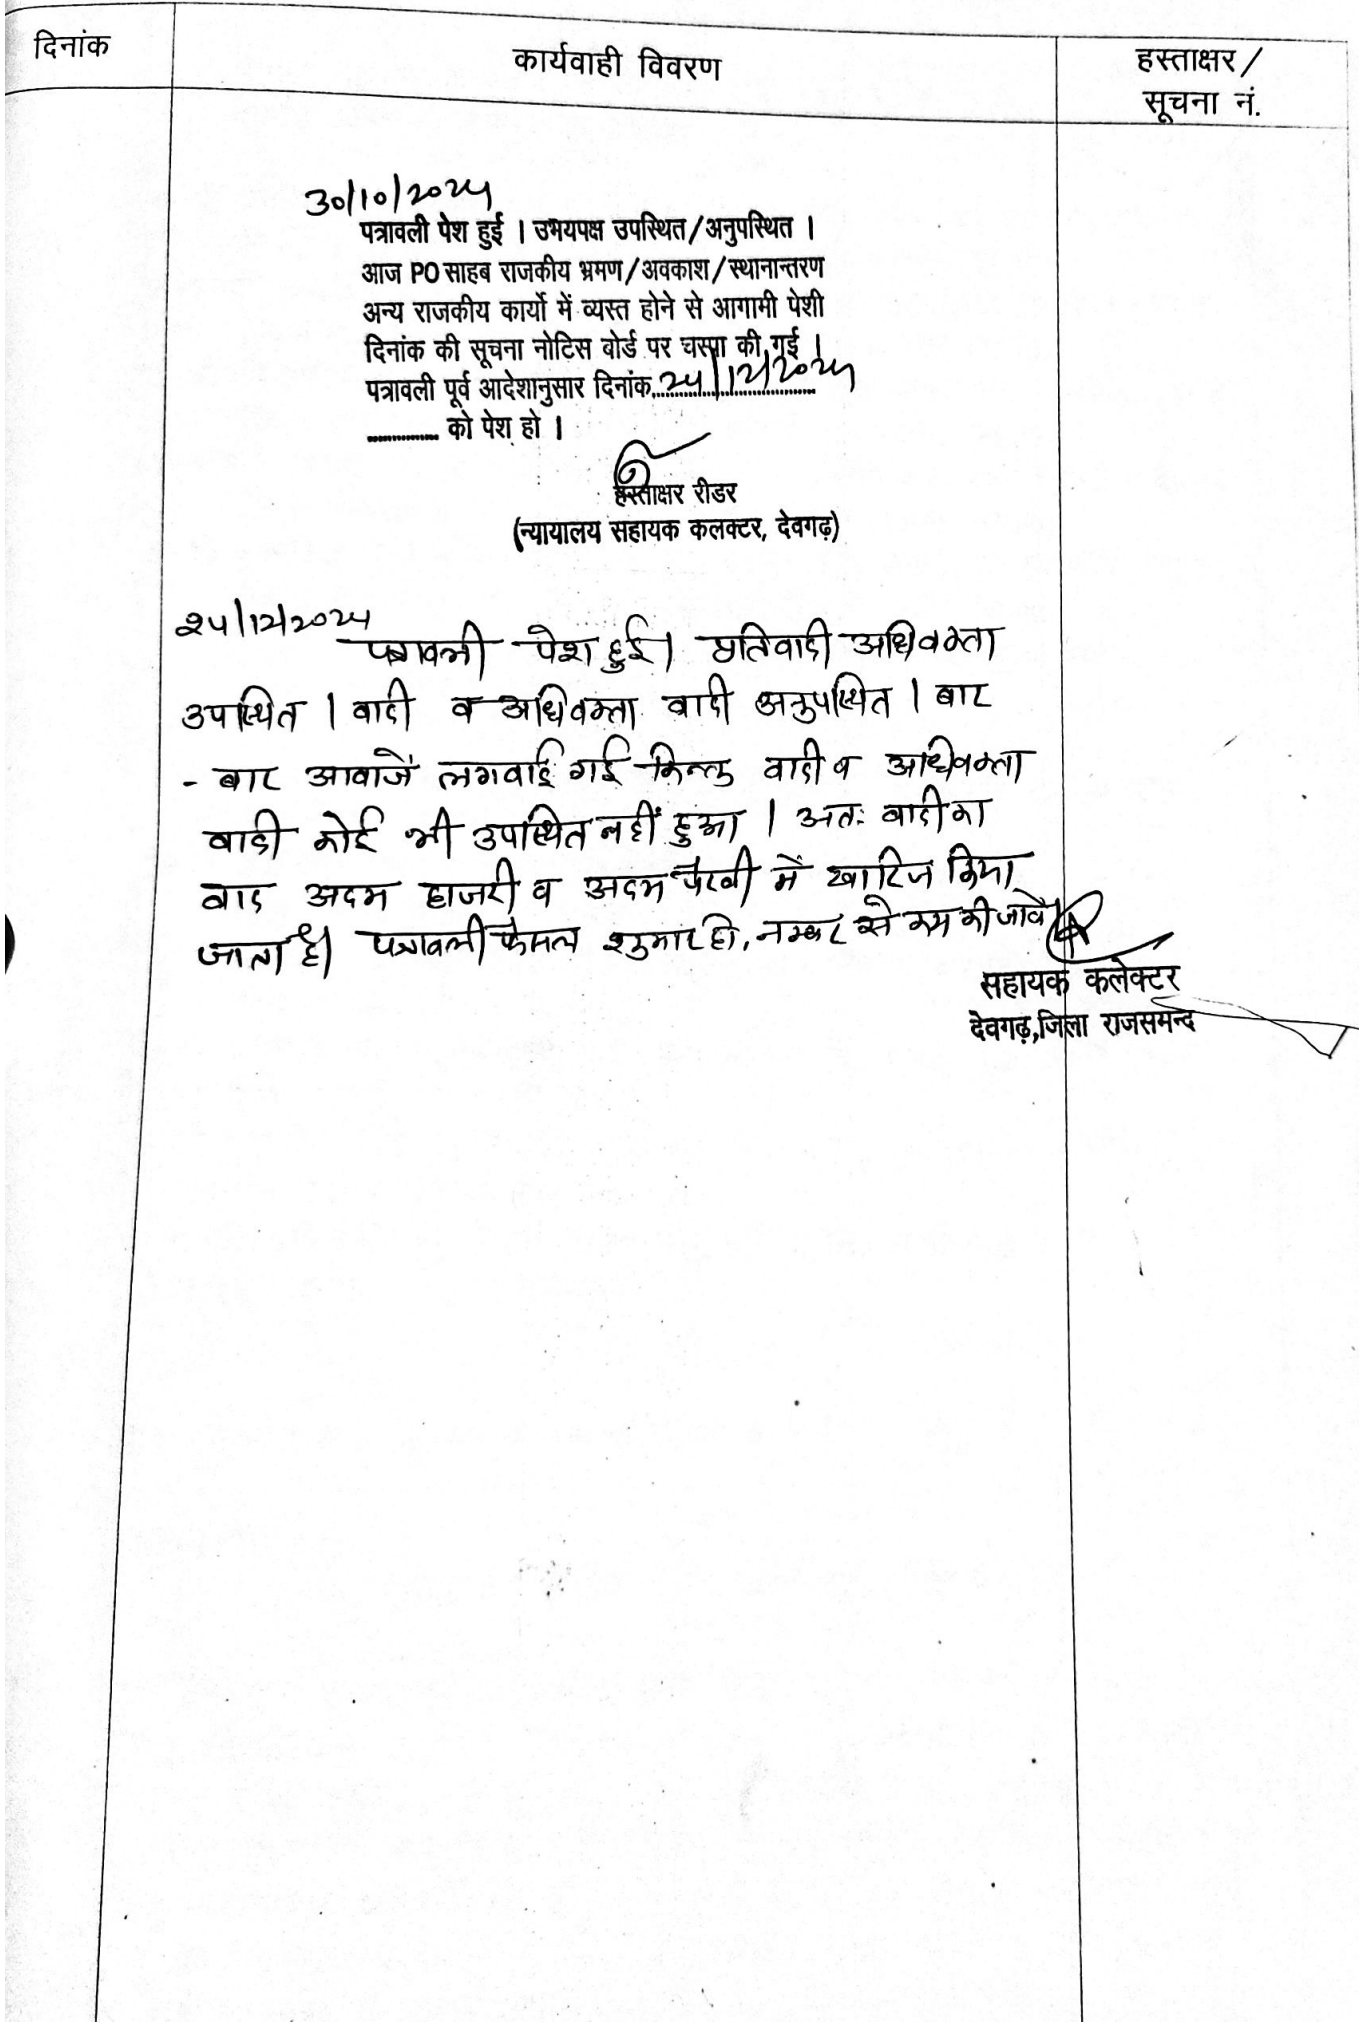 दिनांक
कार्यवाही विवरण
हस्ताक्षर/
सूचना नं.
30/10/2024
पत्रावली पेश हुई । उभयपक्ष उपस्थित/अनुपस्थित ।
आज PO साहब राजकीय भ्रमण/अवकाश/स्थानान्तरण
अन्य राजकीय कार्यो में व्यस्त होने से आगामी पेशी
दिनांक की सूचना नोटिस बोर्ड पर चस्पा की गई ।
पत्रावली पूर्व आदेशानुसार दिनांक 24/12/2024
............ को पेश हो ।
हस्ताक्षर रीडर
(न्यायालय सहायक कलक्टर, देवगढ़)
24/12/2024
पत्रावली पेश हुई। प्रतिवादी अधिवक्ता
उपस्थित । वादी व अधिवक्ता वादी अनुपस्थित । बार
- बार आवाजें लगवाई गई किन्तु वादी व अधिवक्ता
वादी कोई भी उपस्थित नहीं हुआ । अतः वादी का
वाद अदम हाजरी व अदम पैरवी में खारिज किया
जाता है। पत्रावली फैसल शुमार हो, नम्बर से कम की जावें।
सहायक कलेक्टर
देवगढ़,जिला राजसमन्द